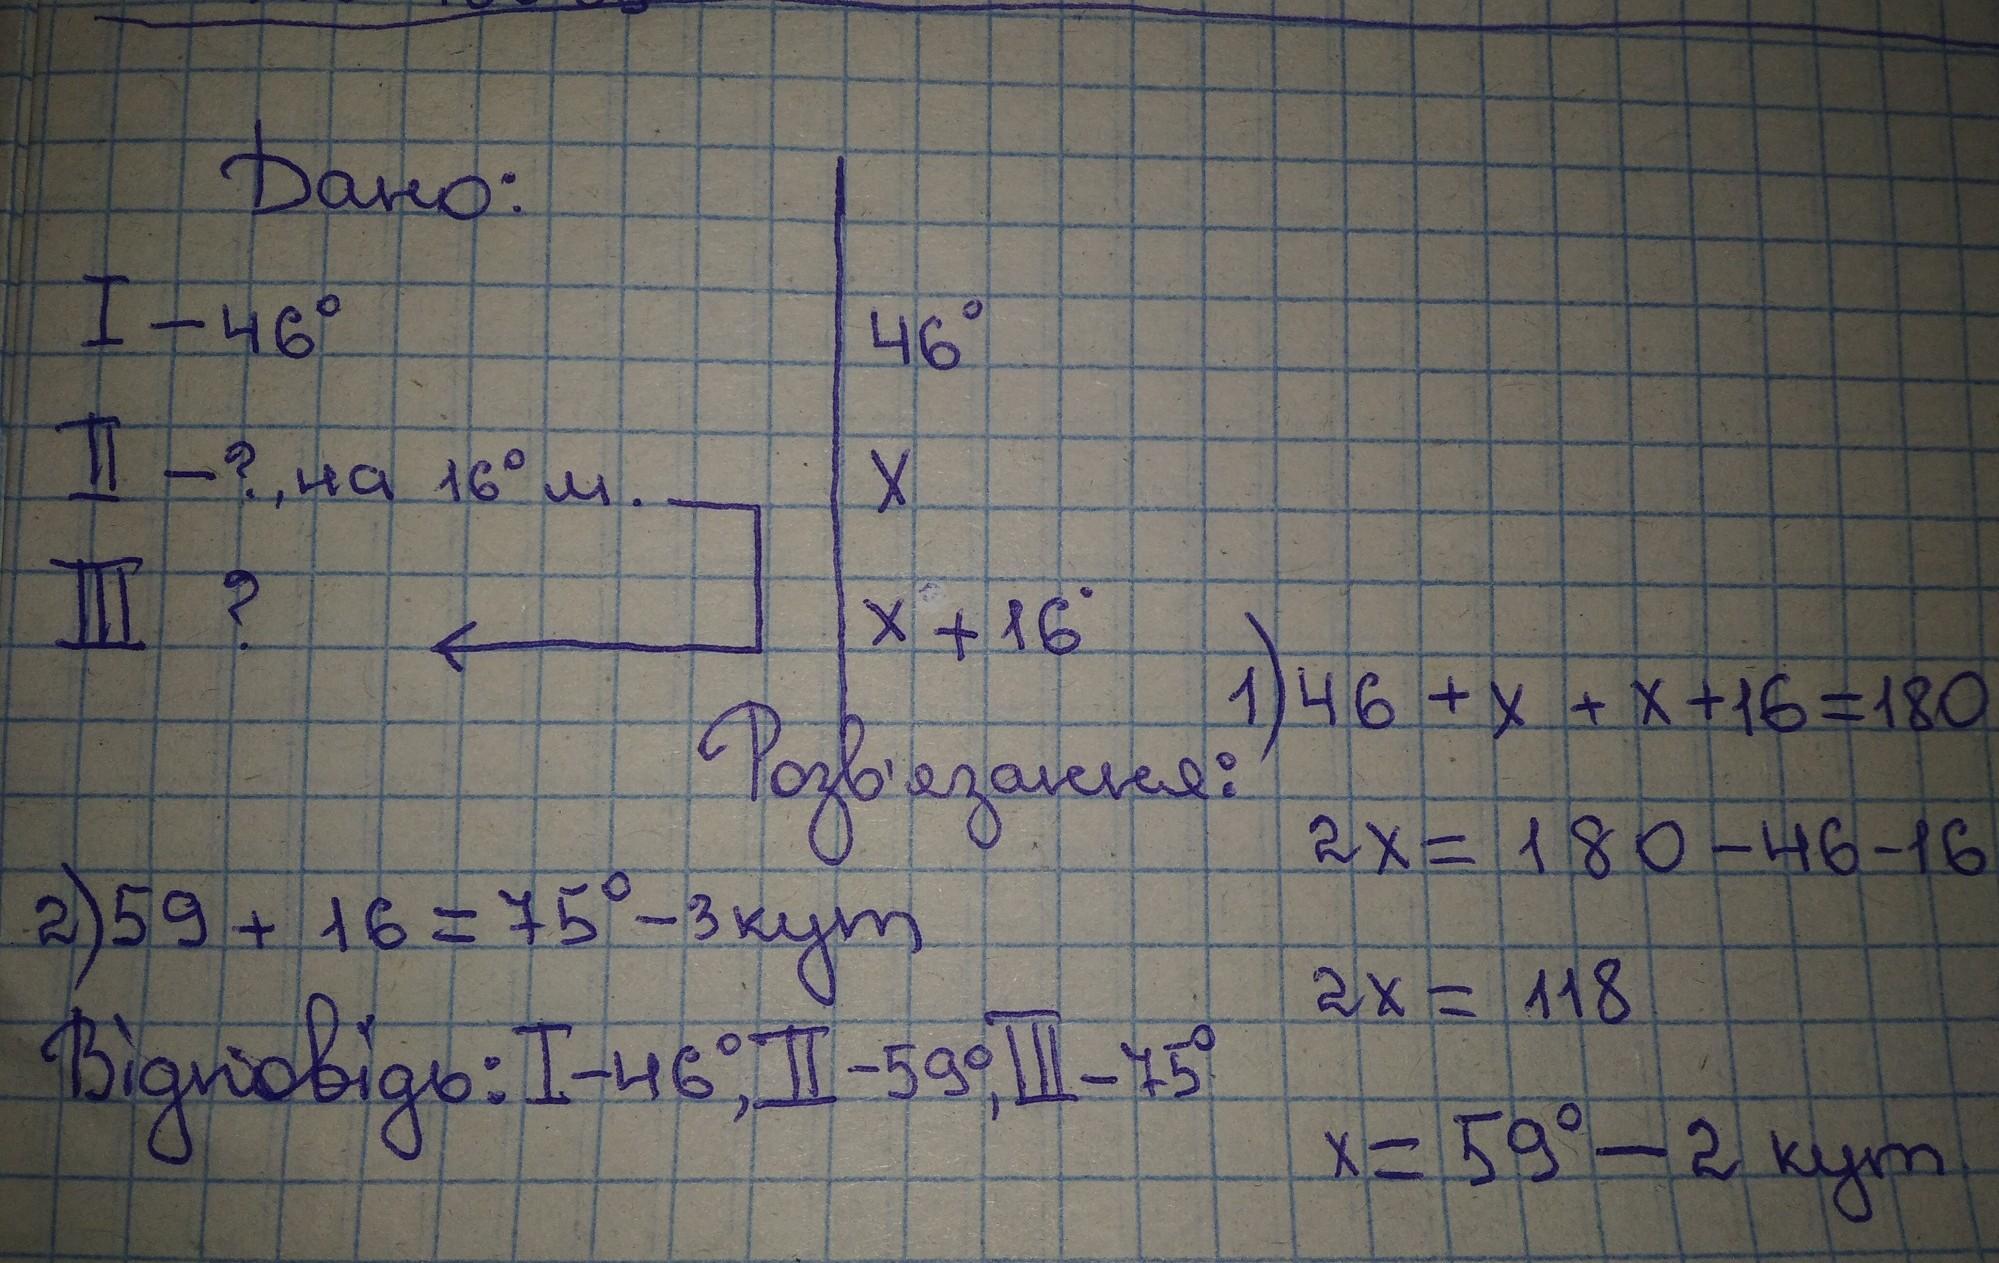 Дано:
I – 46°
46°
II – ?, на 16° м.
x
III ?
x + 16°
Розв'язання:
1) 46 + x + x + 16 = 180
2x = 180 – 46 – 16
2x = 118
x = 59° – 2 кут
2) 59 + 16 = 75° – 3 кут
Відповідь: I – 46°, II – 59°, III – 75°